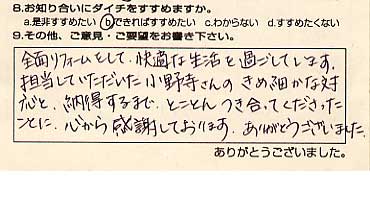 8.お知り合いにダイチをすすめますか。
a.是非すすめたい b.できればすすめたい c.わからない d.すすめたくない
9.その他、ご意見・ご要望をお書き下さい。
全面リフォームをして、快適な生活を過ごしています。
担当していただいた小野寺さんのきめ細かな対
応と、納得するまで、とことんつき合ってくださった
ことに、心から感謝しております。ありがとうございました。
ありがとうございました。